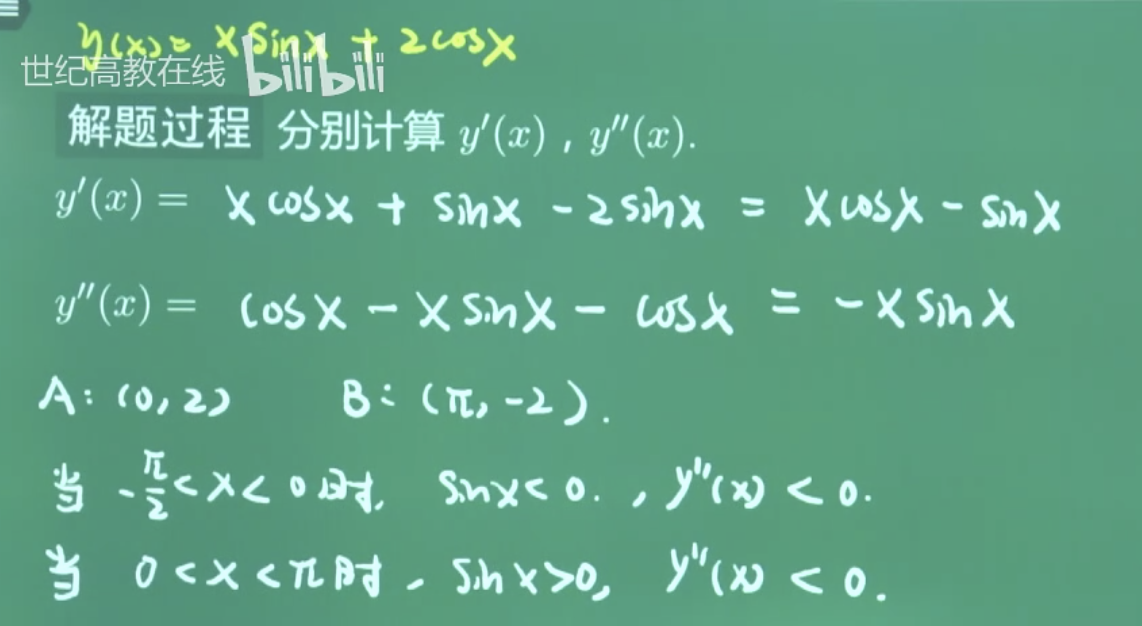 y(x)= x sinx + 2cosx
世纪高教在线 bilibili
解题过程 分别计算 y′(x) , y″(x).
y′(x) = x cosx + sinx - 2sinx = x cosx - sinx
y″(x) = cosx - x sinx - cosx = -x sinx
A: (0, 2) B: (π, -2).
当 -π/2 < x < 0 时, sinx < 0. , y″(x) < 0.
当 0 < x < π 时, sinx>0, y″(x) < 0.